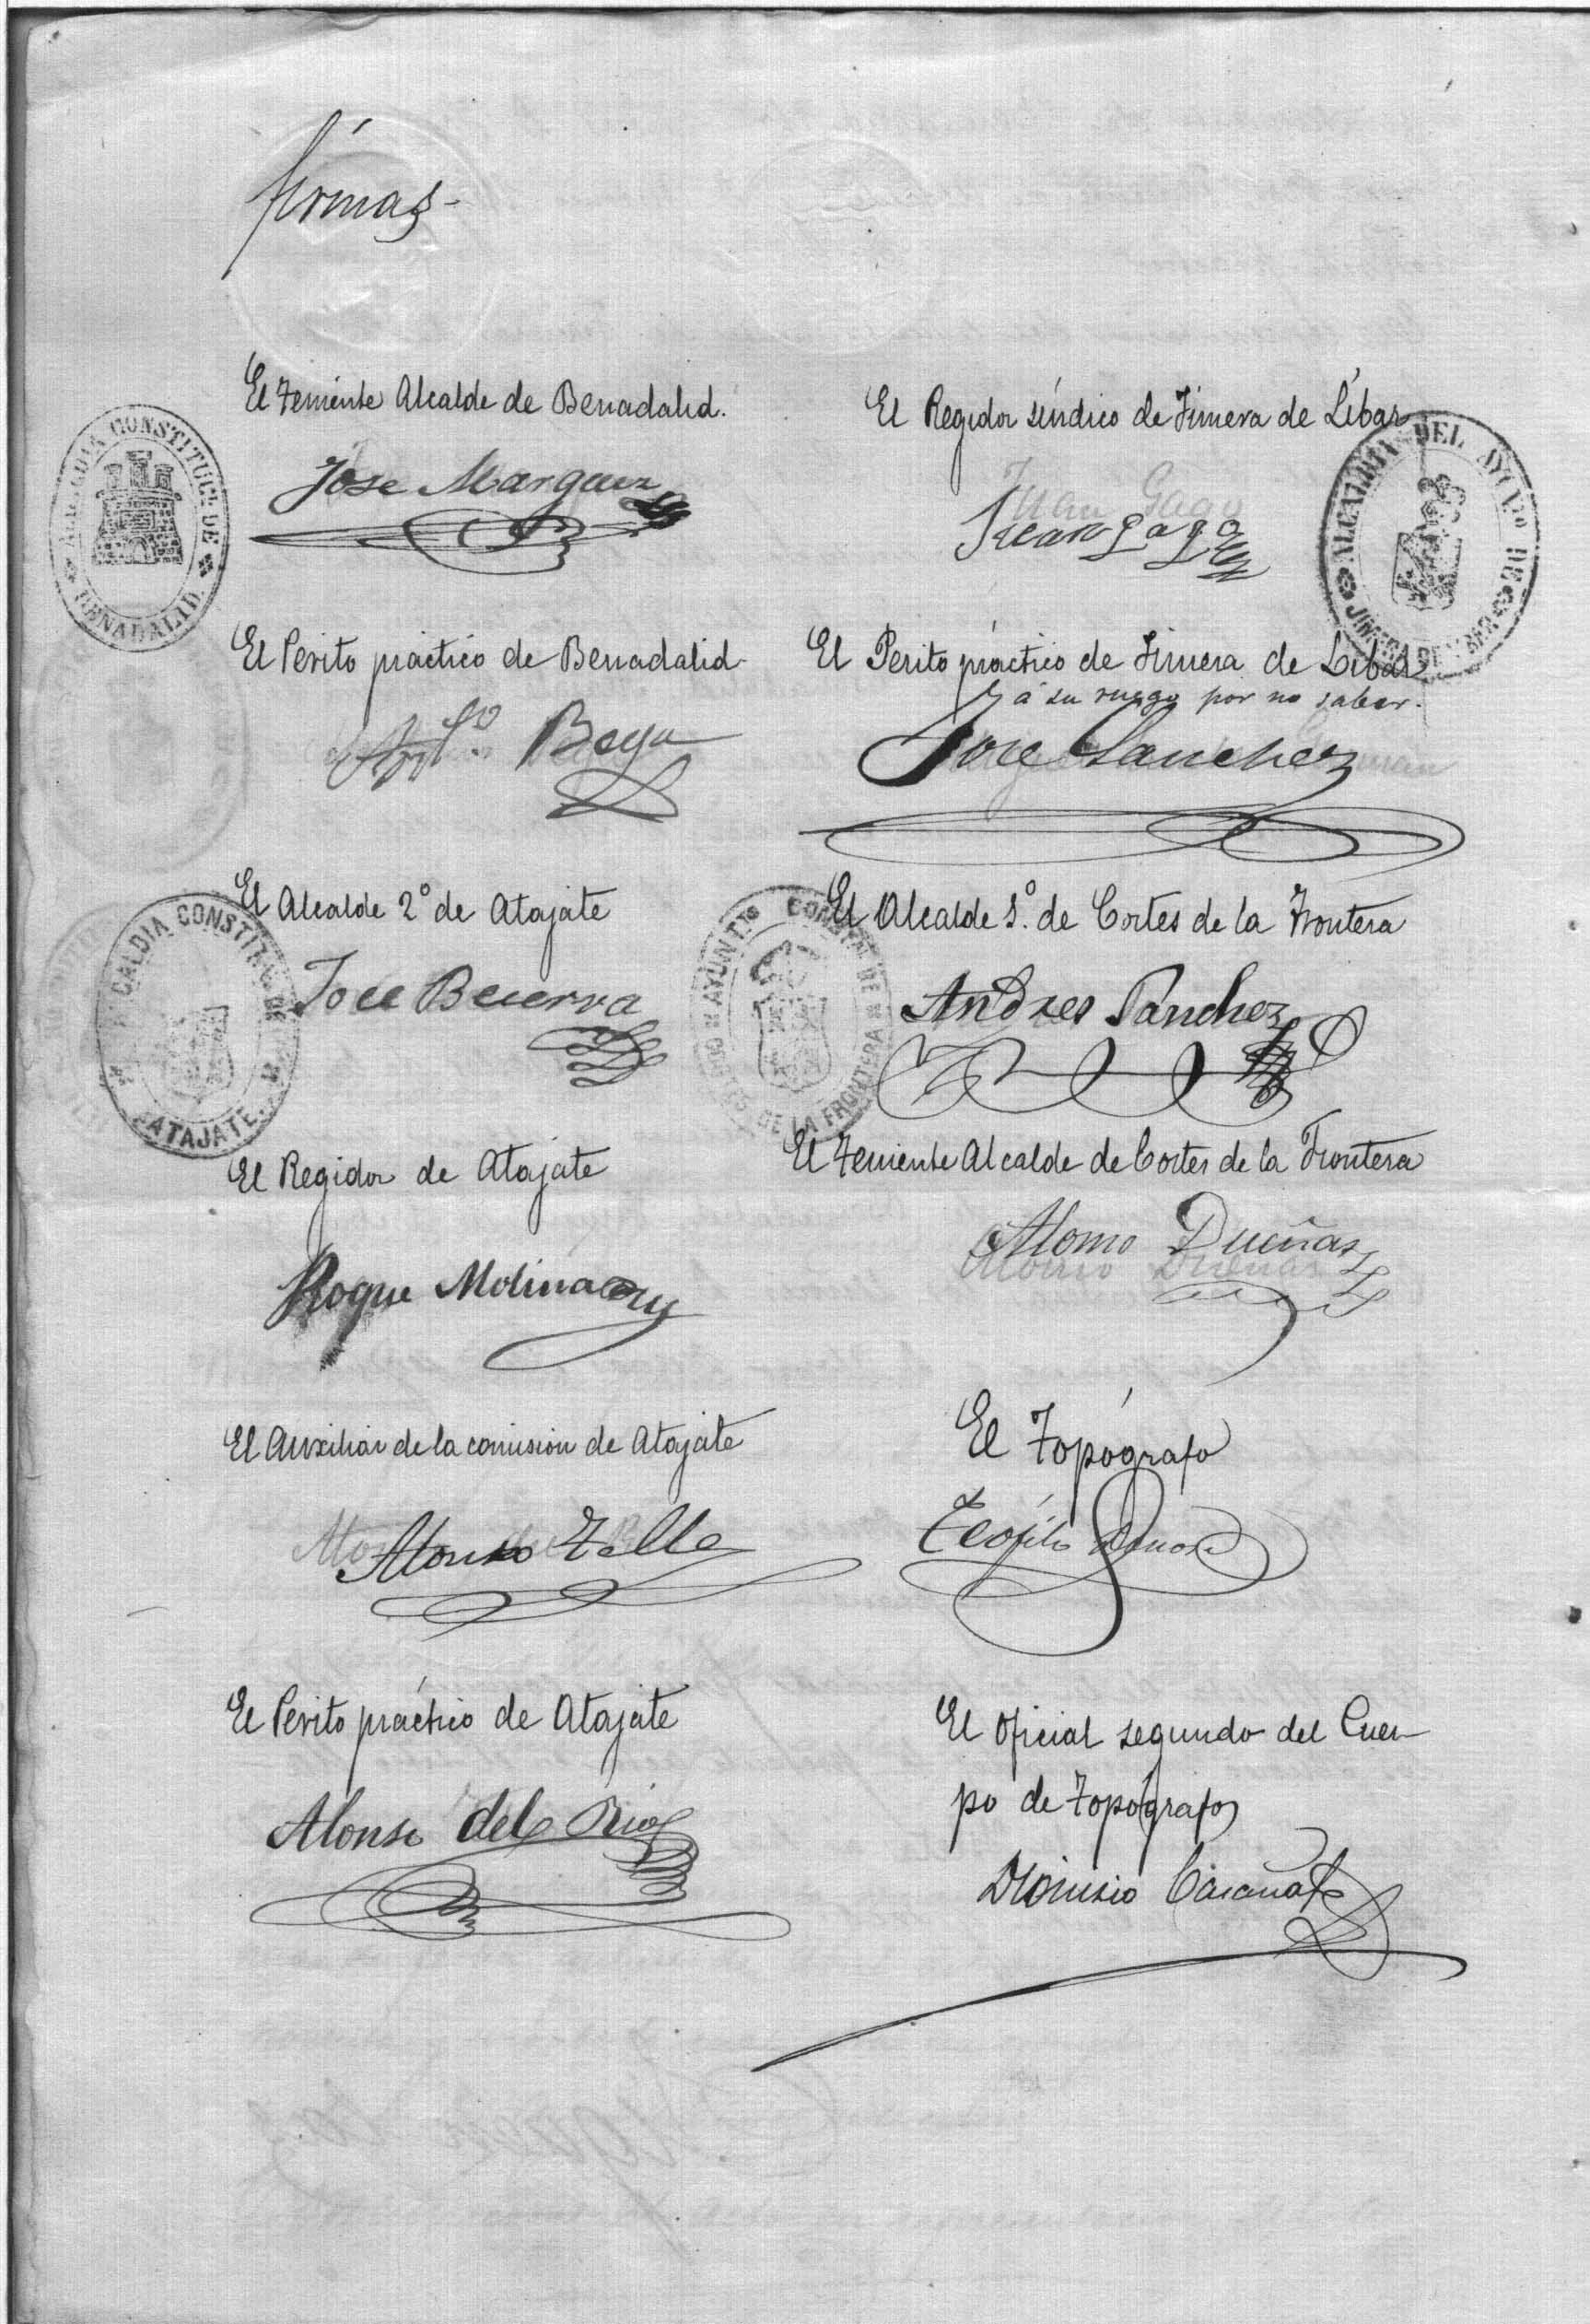 firmas-
El Teniente Alcalde de Benadalid.
Jose Marquez
ALCALDIA CONSTITUCL. DE BENADALID
El Regidor síndico de Jimera de Líbar
Juan Gago
Juan Gago
ALCALDIA DEL AYUNTO. DE JIMERA DE
El Perito práctico de Benadalid
Beya
El Perito práctico de Jimera de Libar
á su ruego por no saber.
Jose Sanchez
El Alcalde 2º de Atajate
Jose Becerra
ALCALDIA CONSTITUC DE ATAJATE
El Alcalde 1º. de Cortes de la Frontera
Andres Sanchez
AYUNTO. CONSTAL. DE CORTES DE LA FRONTERA
El Regidor de Atajate
Roque Molina
El Teniente Alcalde de Cortes de la Frontera
Alonso Dueñas
Alonso Dueñas
El Auxiliar de la comision de Atajate
Alonso Tello
El Topógrafo
Teofilo
El Perito práctico de Atajate
Alonso del Rio
El Oficial segundo del Cuer-
po de Topógrafos
Dionisio Casañal